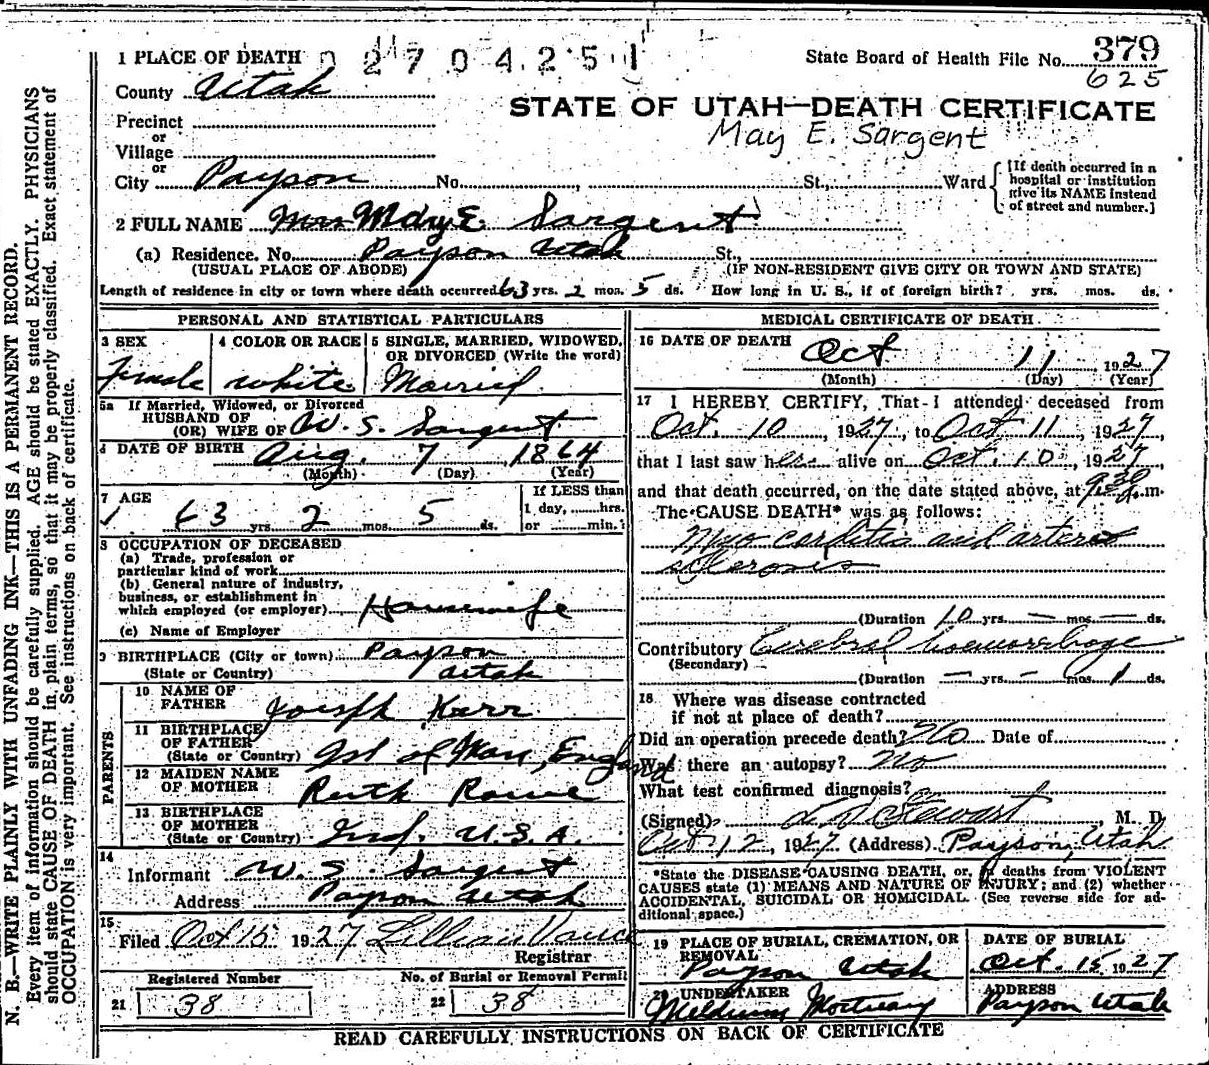 1 PLACE OF DEATH 0 2 7 0 4 2 5 1
State Board of Health File No. 379
625
County Utah
STATE OF UTAH—DEATH CERTIFICATE
May E. Sargent
Precinct
or
Village
or
City Payson No. St., Ward
[If death occurred in a
hospital or institution
give its NAME instead
of street and number.]
2 FULL NAME Mrs Mary E. Sargent
(a) Residence. No. Payson Utah St.,
(USUAL PLACE OF ABODE) (IF NON-RESIDENT GIVE CITY OR TOWN AND STATE)
Length of residence in city or town where death occurred 63 yrs. 2 mos. 5 ds. How long in U. S., if of foreign birth? yrs. mos. ds.
PERSONAL AND STATISTICAL PARTICULARS
3 SEX 4 COLOR OR RACE 5 SINGLE, MARRIED, WIDOWED,
OR DIVORCED (Write the word)
Female White Married
5a If Married, Widowed, or Divorced
HUSBAND OF
(OR) WIFE OF W. S. Sargent
6 DATE OF BIRTH Aug. 7, 1864
(Month) (Day) (Year)
7 AGE If LESS than
1 day, hrs.
63 yrs. 2 mos. 5 ds. or min.
8 OCCUPATION OF DECEASED
(a) Trade, profession or
particular kind of work
(b) General nature of industry,
business, or establishment in
which employed (or employer) Housewife
(c) Name of Employer
9 BIRTHPLACE (City or town) Payson
(State or Country) Utah
PARENTS
10 NAME OF
FATHER Joseph Kerr
11 BIRTHPLACE
OF FATHER
(State or Country) Isl of Man, England
12 MAIDEN NAME
OF MOTHER Ruth Rowe
13 BIRTHPLACE
OF MOTHER
(State or Country) Ind. U.S.A.
14
Informant W. S. Sargent
Address Payson Utah
15
Filed Oct 15 1927 Lillian Vance
Registrar
Registered Number No. of Burial or Removal Permit
21 38 22 38
MEDICAL CERTIFICATE OF DEATH
16 DATE OF DEATH
Oct 11 1927
(Month) (Day) (Year)
17 I HEREBY CERTIFY, That I attended deceased from
Oct. 10, 1927, to Oct 11, 1927,
that I last saw her alive on Oct. 10, 1927,
and that death occurred, on the date stated above, at 9:30 m.
The CAUSE DEATH* was as follows:
Myo carditis and arterio
sclerosis
(Duration 10 yrs. — mos. — ds.
Contributory Cerebral hoemorrhage
(Secondary)
(Duration — yrs. — mos. 1 ds.
18 Where was disease contracted
if not at place of death?
Did an operation precede death? No Date of
Was there an autopsy? No
What test confirmed diagnosis?
(Signed) Stewart, M. D.
Oct 12, 1927 (Address) Payson, Utah
*State the DISEASE CAUSING DEATH, or, in deaths from VIOLENT
CAUSES state (1) MEANS AND NATURE OF INJURY; and (2) whether
ACCIDENTAL, SUICIDAL OR HOMICIDAL. (See reverse side for ad-
ditional space.)
19 PLACE OF BURIAL, CREMATION, OR
REMOVAL
Payson Utah
DATE OF BURIAL
Oct. 15 1927
20 UNDERTAKER
Mortuary
ADDRESS
Payson Utah
READ CAREFULLY INSTRUCTIONS ON BACK OF CERTIFICATE
N. B.—WRITE PLAINLY WITH UNFADING INK—THIS IS A PERMANENT RECORD.
Every item of information should be carefully supplied. AGE should be stated EXACTLY. PHYSICIANS
should state CAUSE OF DEATH in plain terms, so that it may be properly classified. Exact statement of
OCCUPATION is very important. See instructions on back of certificate.